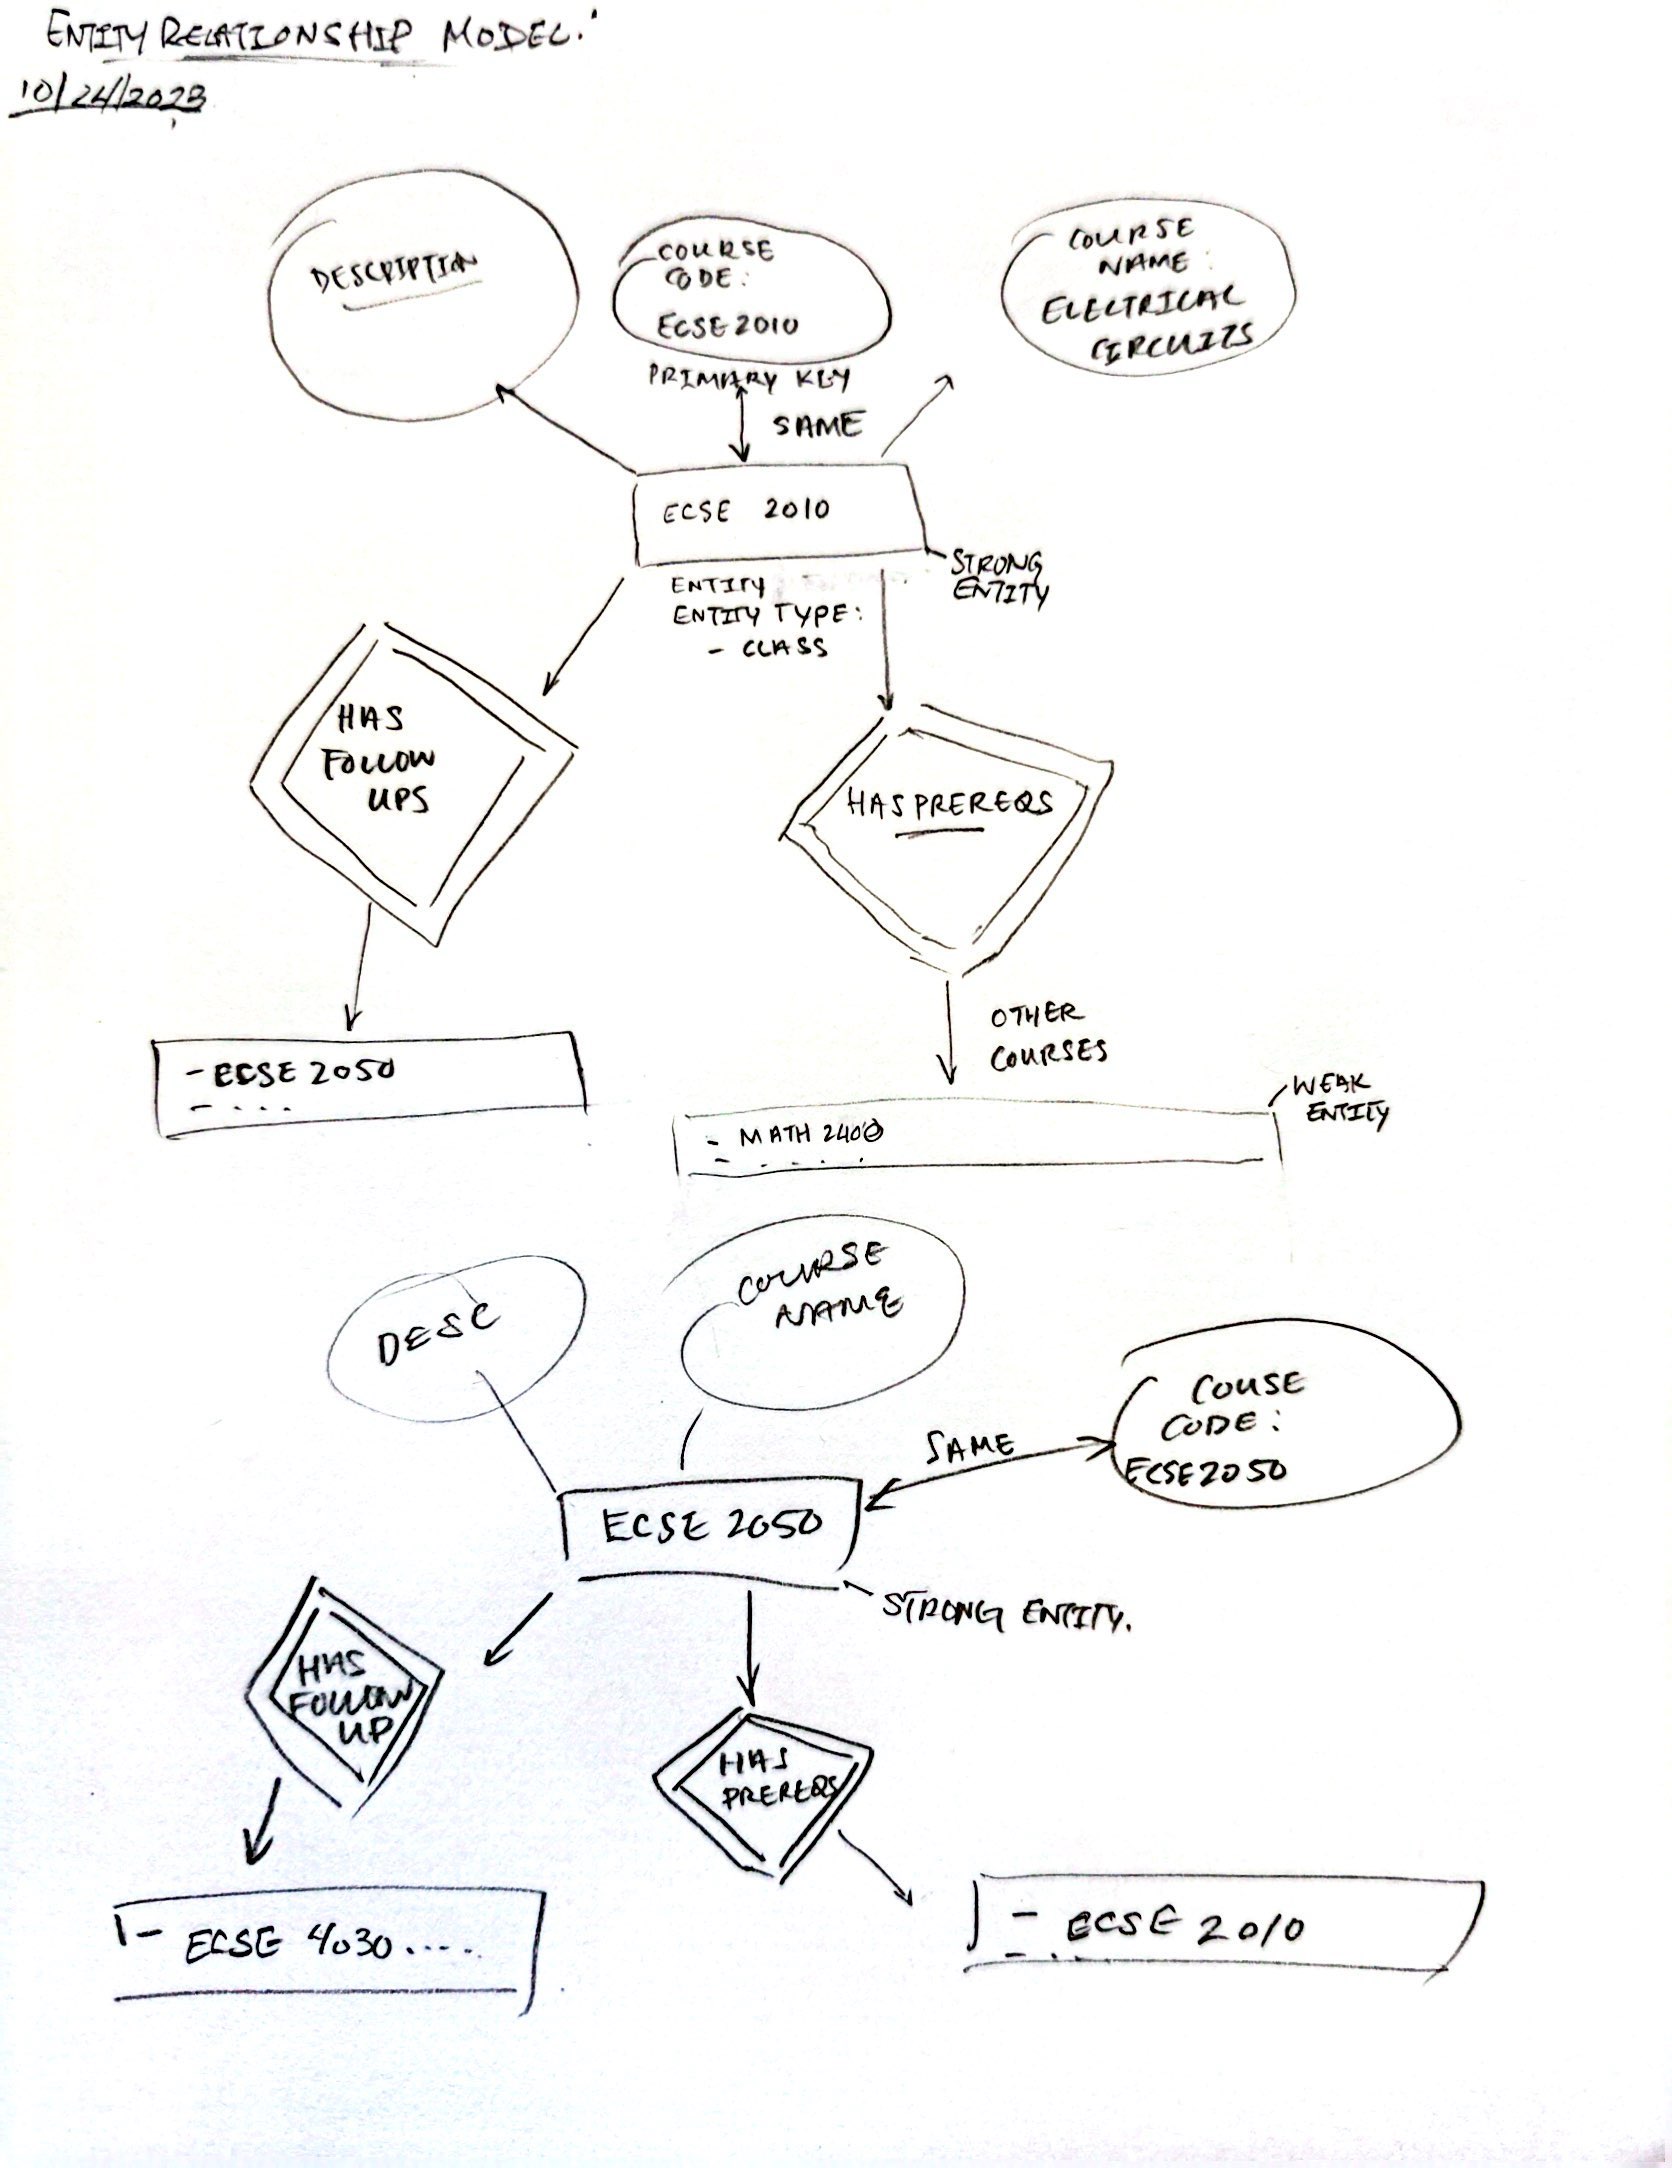 ENTITY RELATIONSHIP MODEL:
10/24/2023
DESCRIPTION
COURSE
CODE:
ECSE 2010
PRIMARY KEY
SAME
COURSE
NAME:
ELECTRICAL
CIRCUITS
ECSE 2010
STRONG
ENTITY
ENTITY
ENTITY TYPE:
- CLASS
HAS
FOLLOW
UPS
HAS PREREQS
- ECSE 2050
- . . .
OTHER
COURSES
WEAK
ENTITY
- MATH 2400
- . . . .
DESC
COURSE
NAME
SAME
COUSE
CODE:
ECSE 2050
ECSE 2050
STRONG ENTITY.
HAS
FOLLOW
UP
HAS
PREREQS
- ECSE 4030.....
- ECSE 2010
- . . .